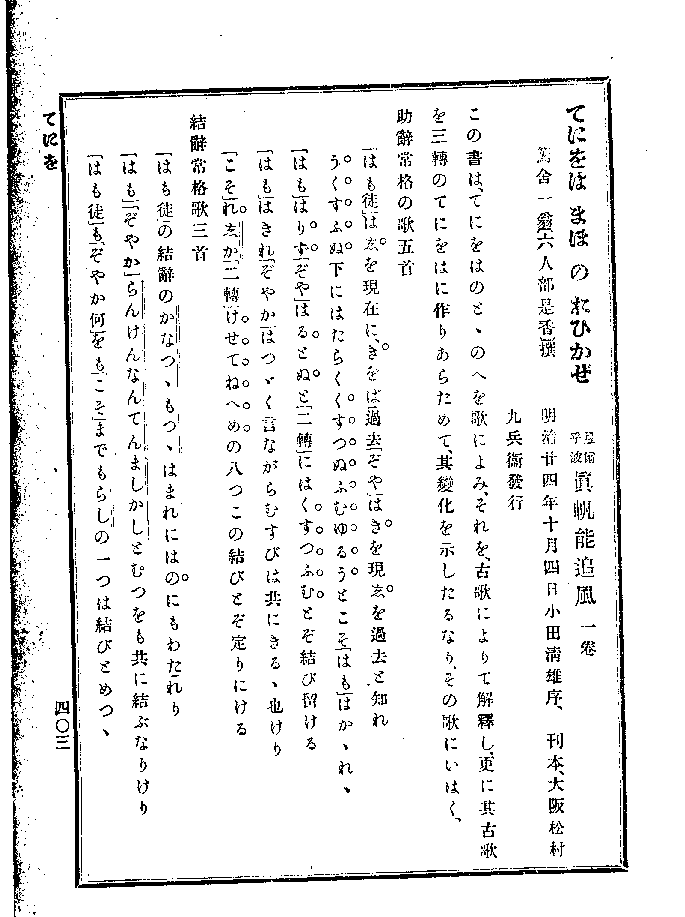 てにをは まほ の おひかぜ
眞帆能追風 一卷
篶舍一翁六人部是香撰
明治廿四年十月四日小田淸雄序、刊本、大阪松村
九兵衞發行
この書は、てにをはのとゝのへを歌によみ、それを、古歌によりて解釋し、更に其古歌
を三轉のてにをはに作りあらためて、其變化を示したるなり、その歌にいはく、
助辭常格の歌五首
「はも徒」は志を現在に、きをば過去「ぞや」はきを現志を過去と知れ
うくすふぬ下にはたらくくすつぬふむゆるうとこそ「はも」はかゝれゝ
「はも」はりず「ぞや」はるとぬと「二轉」にはくすつふむとぞ結び留ける
「はも」はきれ「ぞやか」はつゞく言ながらむすびは共にきるゝ也けり
「こそ」れ志か「二轉」けせてねへめの八つこの結びとぞ定りにける
結辭常格歌三首
「はも徒」の結辭のかなつゝもつゝはまれにはのにもわたれり
「はも」「ぞやか」らんけんなんてんましかしとむつをも共に結ぶなりけり
「はも徒」も「ぞやか何」を も「こそ」までもらしの一つは結びとめつゝ
てにを
四〇三